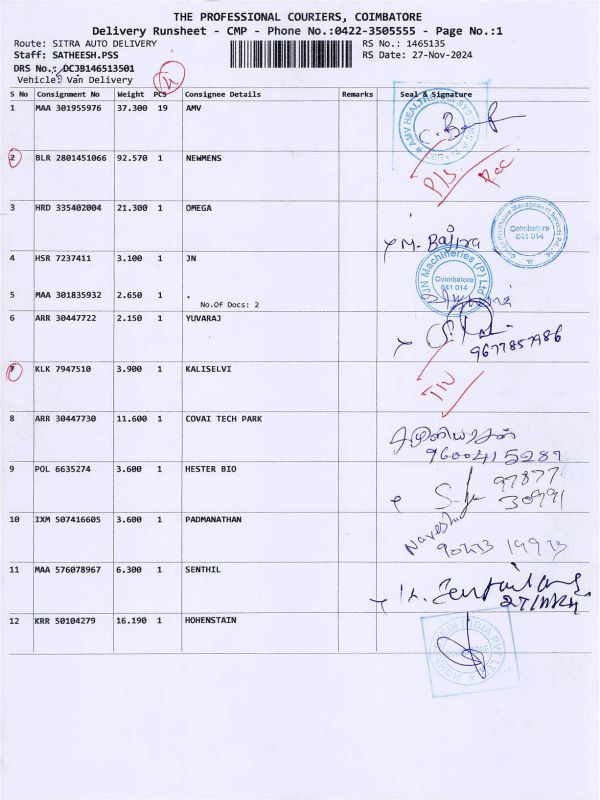 THE PROFESSIONAL COURIERS, COIMBATORE
Delivery Runsheet - CMP - Phone No.:0422-3505555 - Page No.:1
Route: SITRA AUTO DELIVERY RS No.: 1465135
Staff: SATHEESH.PSS RS Date: 27-Nov-2024
DRS No.: DCJB146513501
Vehicle: Van Delivery
S No Consignment No Weight PCS Consignee Details Remarks Seal & Signature
1 MAA 301955976 37.300 19 AMV
2 BLR 2801451066 92.570 1 NEWMENS
3 HRD 335402004 21.300 1 OMEGA
Coimbatore
641 014
M. Bajira
4 HSR 7237411 3.100 1 JN
JN Machineries (P) Ltd
Coimbatore
641 014
5 MAA 301835932 2.650 1 .
No.Of Docs: 2
6 ARR 30447722 2.150 1 YUVARAJ
9677857986
7 KLK 7947510 3.900 1 KALISELVI
8 ARR 30447730 11.600 1 COVAI TECH PARK
9600415289
9 POL 6635274 3.600 1 HESTER BIO
97877
30991
10 IXM 507416605 3.600 1 PADMANATHAN
Naresh
11 MAA 576078967 6.300 1 SENTHIL
12 KRR 50104279 16.190 1 HOHENSTAIN